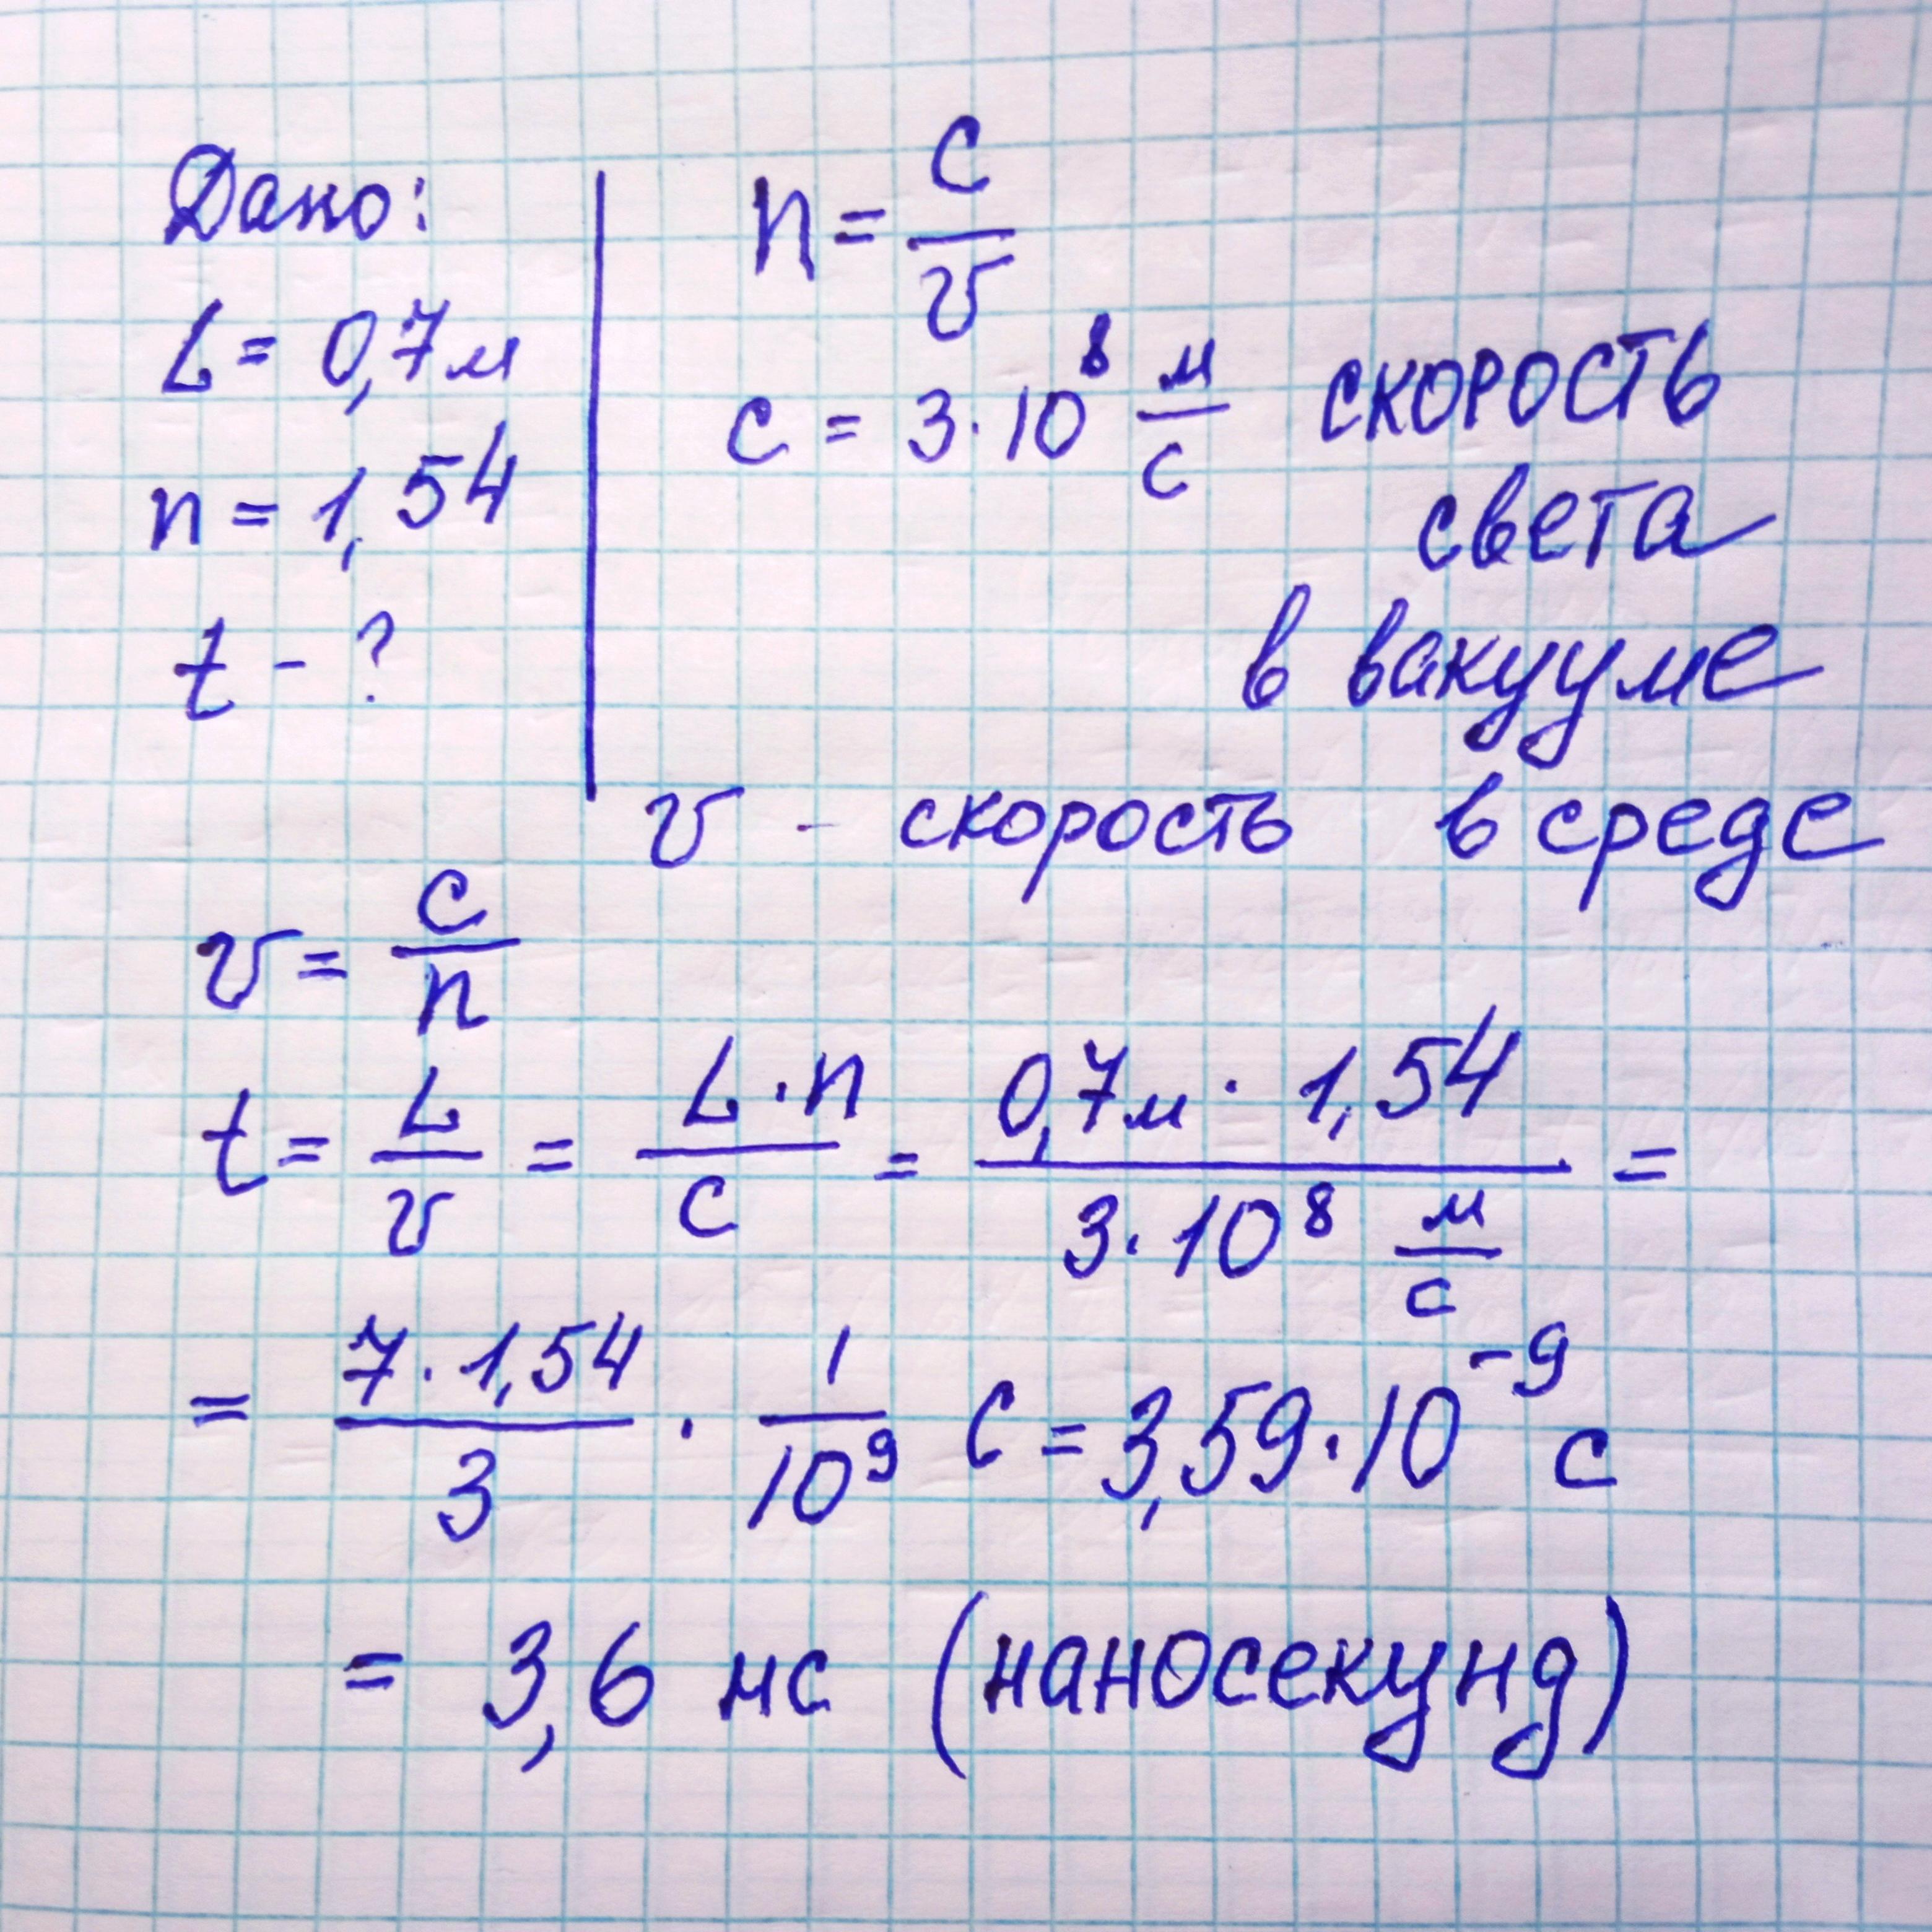 Дано:
L = 0,7 м
n = 1,54
t - ?
n = c/v
c = 3·10⁸ м/с скорость
света
в вакууме
v - скорость в среде
v = c/n
t = L/v = L·n/c = 0,7м · 1,54 / 3·10⁸ м/с =
= 7·1,54/3 · 1/10⁹ с = 3,59·10⁻⁹ с
= 3,6 нс (наносекунд)